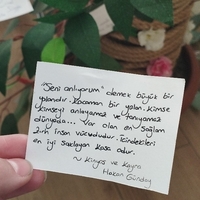 "Seni anlıyorum" demek büyük bir
yalandır. Kocaman bir yalan. Kimse
kimseyi anlayamaz ve tanıyamaz
dünyada... Var olan en sağlam
zırh insan vücududur. İçindekileri
en iyi saklayan kasa odur.
~ Kinyas ve Kayra
Hakan Günday